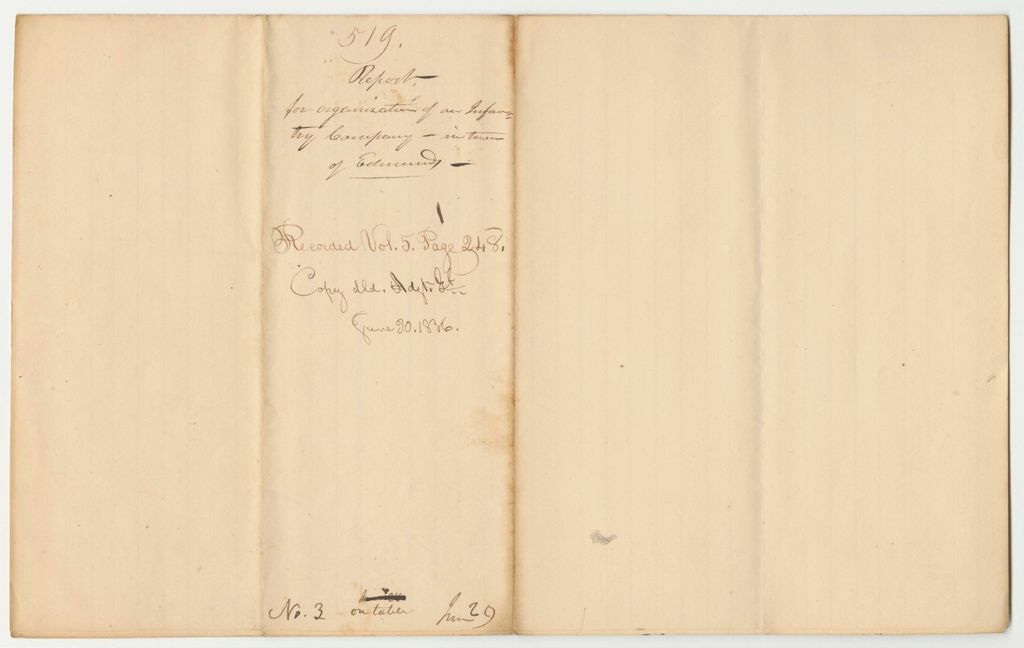 519.
Report
for organization of an Infan-
try Company – in town
of Edmunds –
Recorded Vol. 5. Page 248.
Copy dld. Adjt. Gl.
June 30. 1836.
on table
No. 3 June 29